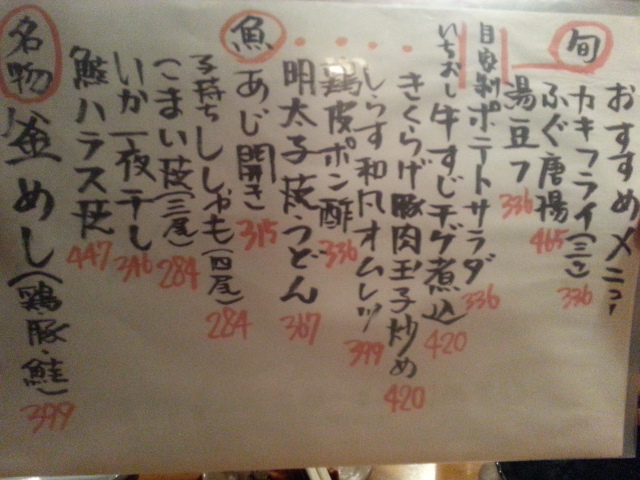 おすすめメニュー
旬
カキフライ(三コ) 336
ふぐ唐揚 465
湯豆フ 336
自家製ポテトサラダ 336
いちおし牛すじチゲ煮込 420
きくらげ豚肉玉子炒め 420
しらす和風オムレツ 399
鶏皮ポン酢 336
明太子焼うどん 367
魚
あじ開き 315
子持ちししゃも(四尾) 284
こまい焼(三尾) 284
いか一夜干し 346
鮭ハラス焼 447
名物
釜めし(鶏・豚・鮭) 399